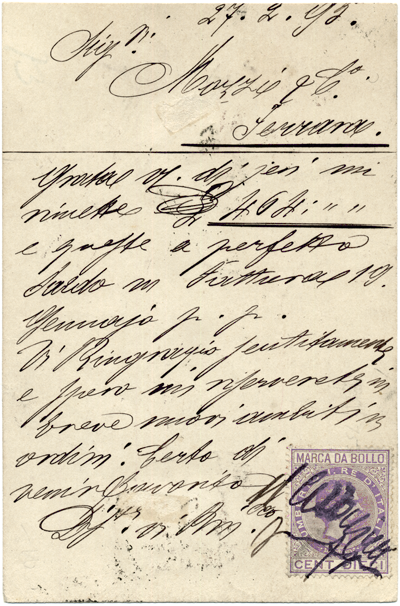 27. 2. 93.
Sigri
Mozzi & Co.
Ferrara.
Grata vs. di jeri mi
rimette £ 464: " "
e queste a perfetto
saldo m/ Fattura 19.
Gennajo p. p.
Vi Ringrazio sentitamente
e spero mi riserverete in
breve nuovi ambiti
ordini. Certo di
venir favorito
MARCA DA BOLLO
UMBERTO I RE D'ITALIA
CENT. DIECI